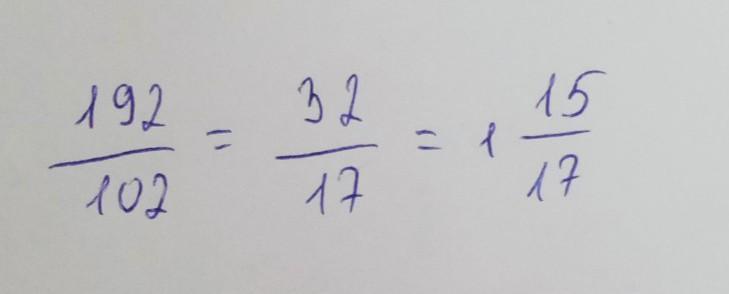 192/102 = 32/17 = 1 15/17